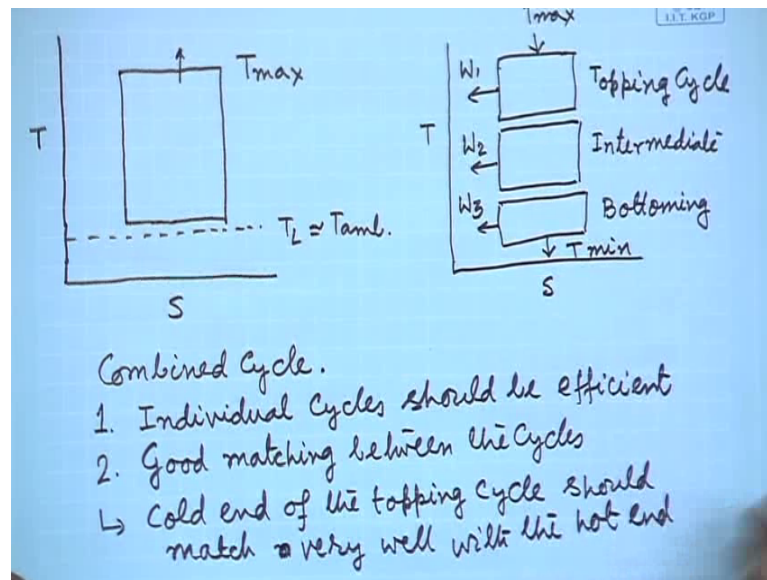 Tmax
I.I.T. KGP
T
Tmax
TL ≃ Tamb.
S
T
W1
Topping Cycle
W2
Intermediate
W3
Bottoming
Tmin
S
Combined Cycle.
1. Individual Cycles should be efficient
2. Good matching between the Cycles
↳ Cold end of the topping cycle should
match very well with the hot end